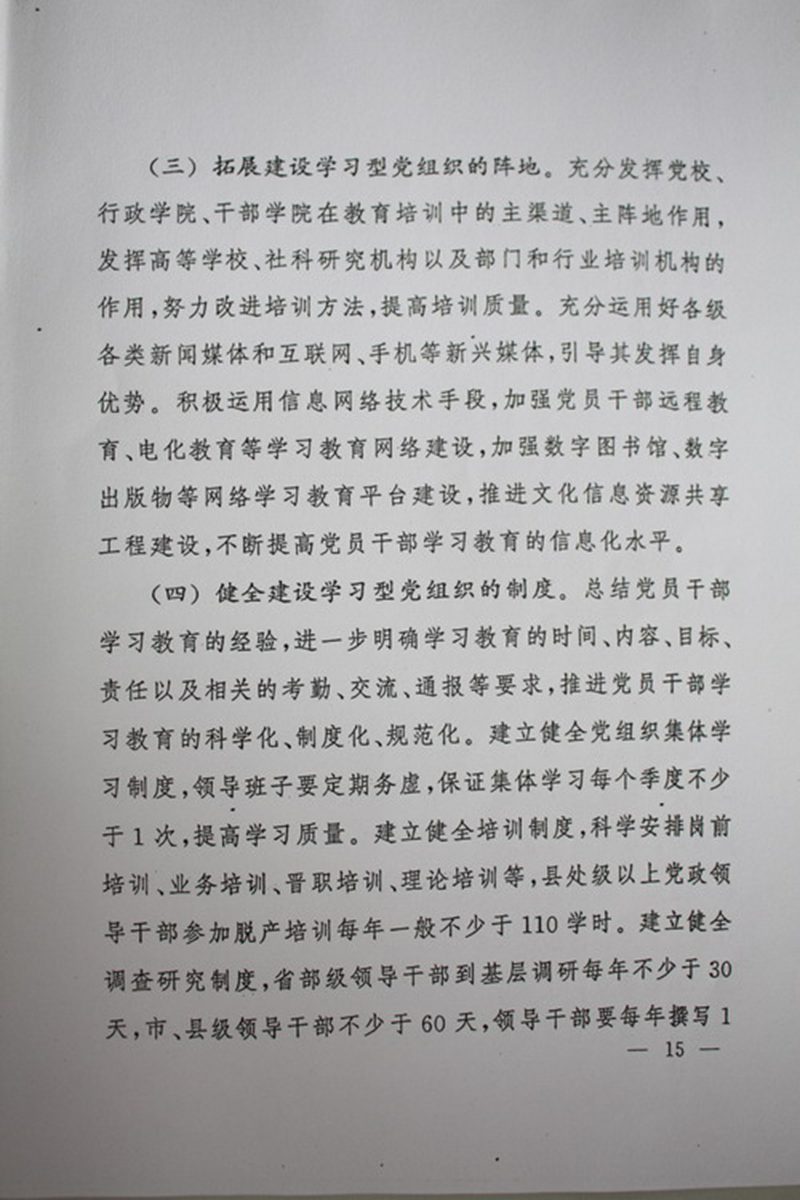 (三) 拓展建设学习型党组织的阵地。充分发挥党校、
行政学院、干部学院在教育培训中的主渠道、主阵地作用，
发挥高等学校、社科研究机构以及部门和行业培训机构的
作用，努力改进培训方法，提高培训质量。充分运用好各级
各类新闻媒体和互联网、手机等新兴媒体，引导其发挥自身
优势。积极运用信息网络技术手段，加强党员干部远程教
育、电化教育等学习教育网络建设，加强数字图书馆、数字
出版物等网络学习教育平台建设，推进文化信息资源共享
工程建设，不断提高党员干部学习教育的信息化水平。
(四) 健全建设学习型党组织的制度。总结党员干部
学习教育的经验，进一步明确学习教育的时间、内容、目标、
责任以及相关的考勤、交流、通报等要求，推进党员干部学
习教育的科学化、制度化、规范化。建立健全党组织集体学
习制度，领导班子要定期务虚，保证集体学习每个季度不少
于1次，提高学习质量。建立健全培训制度，科学安排岗前
培训、业务培训、晋职培训、理论培训等，县处级以上党政领
导干部参加脱产培训每年一般不少于110学时。建立健全
调查研究制度，省部级领导干部到基层调研每年不少于30
天，市、县级领导干部不少于60天，领导干部要每年撰写1
— 15 —